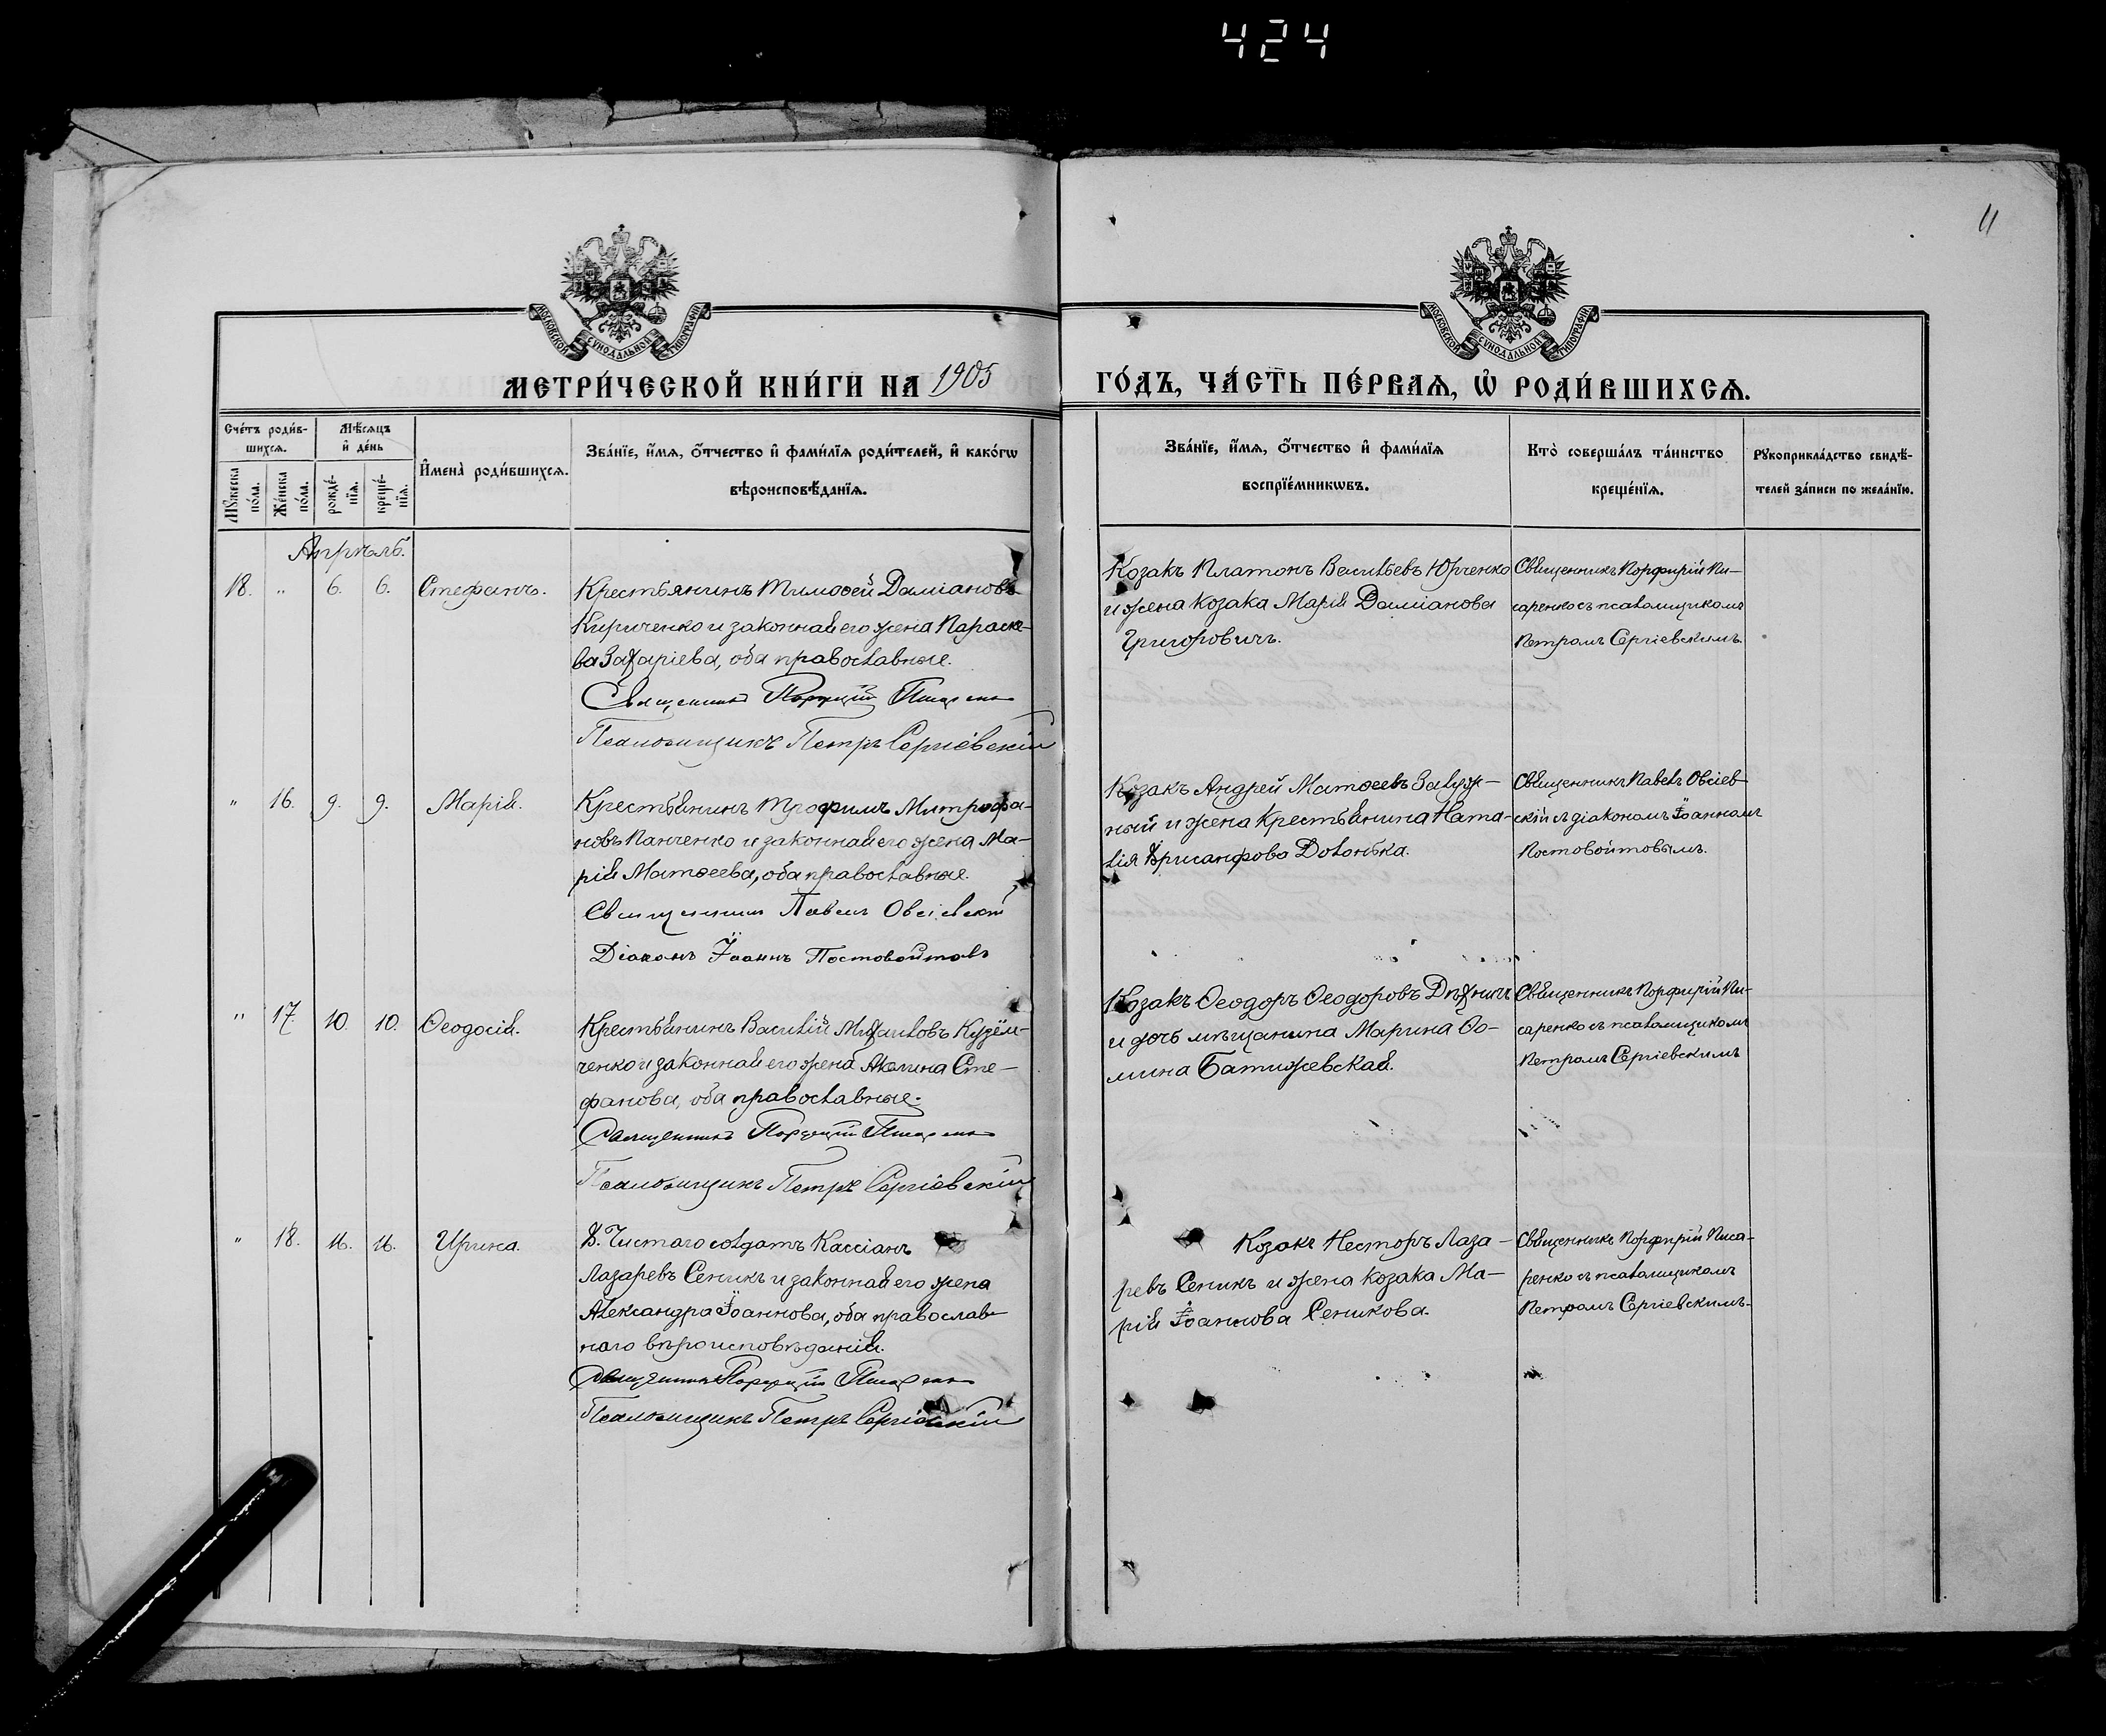 424
11
МОСКОВСКОЙ СѴНОДАЛЬНОЙ ТИПОГРАФІИ
МОСКОВСКОЙ СѴНОДАЛЬНОЙ ТИПОГРАФІИ
МЕТРИ́ЧЕСКОЙ КНИ́ГИ НА 1905
ГО́ДЪ, ЧА́СТЬ ПЕ́РВАѦ, Ѡ҆ РОДИ́ВШИХСѦ.
Сче́тъ роди́в-
шихсѧ.
Мѣ́сѧцъ
и҆ де́нь
Мꙋ́жеска по́ла.
Же́нска по́ла.
рожде́-нїѧ.
креще́-нїѧ.
И҆мена̀ роди́вшихсѧ.
Зва́нїе, и҆́мѧ, ѻ҆́тчество и҆ фами́лїѧ роди́телей, и҆ како́гѡ
вѣроисповѣ́данїѧ.
Зва́нїе, и҆́мѧ, ѻ҆́тчество и҆ фами́лїѧ
воспрїе́мникѡвъ.
Кто̀ соверша́лъ та́инство
креще́нїѧ.
Рꙋкоприкла́дство свидѣ́-
телей за́писи по жела́нїю.
Апрѣль.
18. " 6. 6. Стефанъ.
Крестьянинъ Тимоѳей Даміановъ
Кириченко и законная его жена Параске-
ва Захаріева, оба православные.
Священникъ Порфирій Писаренко
Псаломщикъ Петръ Сергіевскій
Козакъ Платонъ Васильевъ Юрченко
и жена козака Марія Даміанова
Григоровичъ.
Священникъ Порфирій Пи-
саренко съ псаломщикомъ
Петромъ Сергіевскимъ.
" 16. 9. 9. Марія.
Крестьянинъ Трофимъ Митрофа-
новъ Панченко и законная его жена Ма-
рія Матѳеева, оба православные.
Священникъ Павелъ Овсіевскій
Діаконъ Іоаннъ Постовойтовъ
Козакъ Андрей Матѳеевъ Залуж-
ный и жена крестьянина Ната-
лія Хрисанфова Долонька.
Священникъ Павелъ Овсіев-
скій съ діакономъ Іоанномъ
Постовойтовымъ.
" 17 10. 10. Ѳеодосія.
Крестьянинъ Василій Михаиловъ Кузём-
ченко и законная его жена Акилина Сте-
фанова, оба православные.
Священникъ Порфирій Писаренко
Псаломщикъ Петръ Сергіевскій
Козакъ Ѳеодоръ Ѳеодоровъ Дѣхничъ
и дочь мѣщанина Марина Ѳо-
мина Батижевская.
Священникъ Порфирій Пи-
саренко съ псаломщикомъ
Петромъ Сергіевскимъ
" 18. 16. 16. Ирина.
Лазаревъ Сеникъ и законная его жена
Александра Іоаннова, оба православ-
наго вѣроисповѣданія.
Священникъ Порфирій Писаренко
Псаломщикъ Петръ Сергіевскій
Козакъ Несторъ Лаза-
ревъ Сеникъ и жена козака Ма-
рія Іоаннова Сеникова.
Священникъ Порфирій Писа-
ренко съ псаломщикомъ
Петромъ Сергіевскимъ.